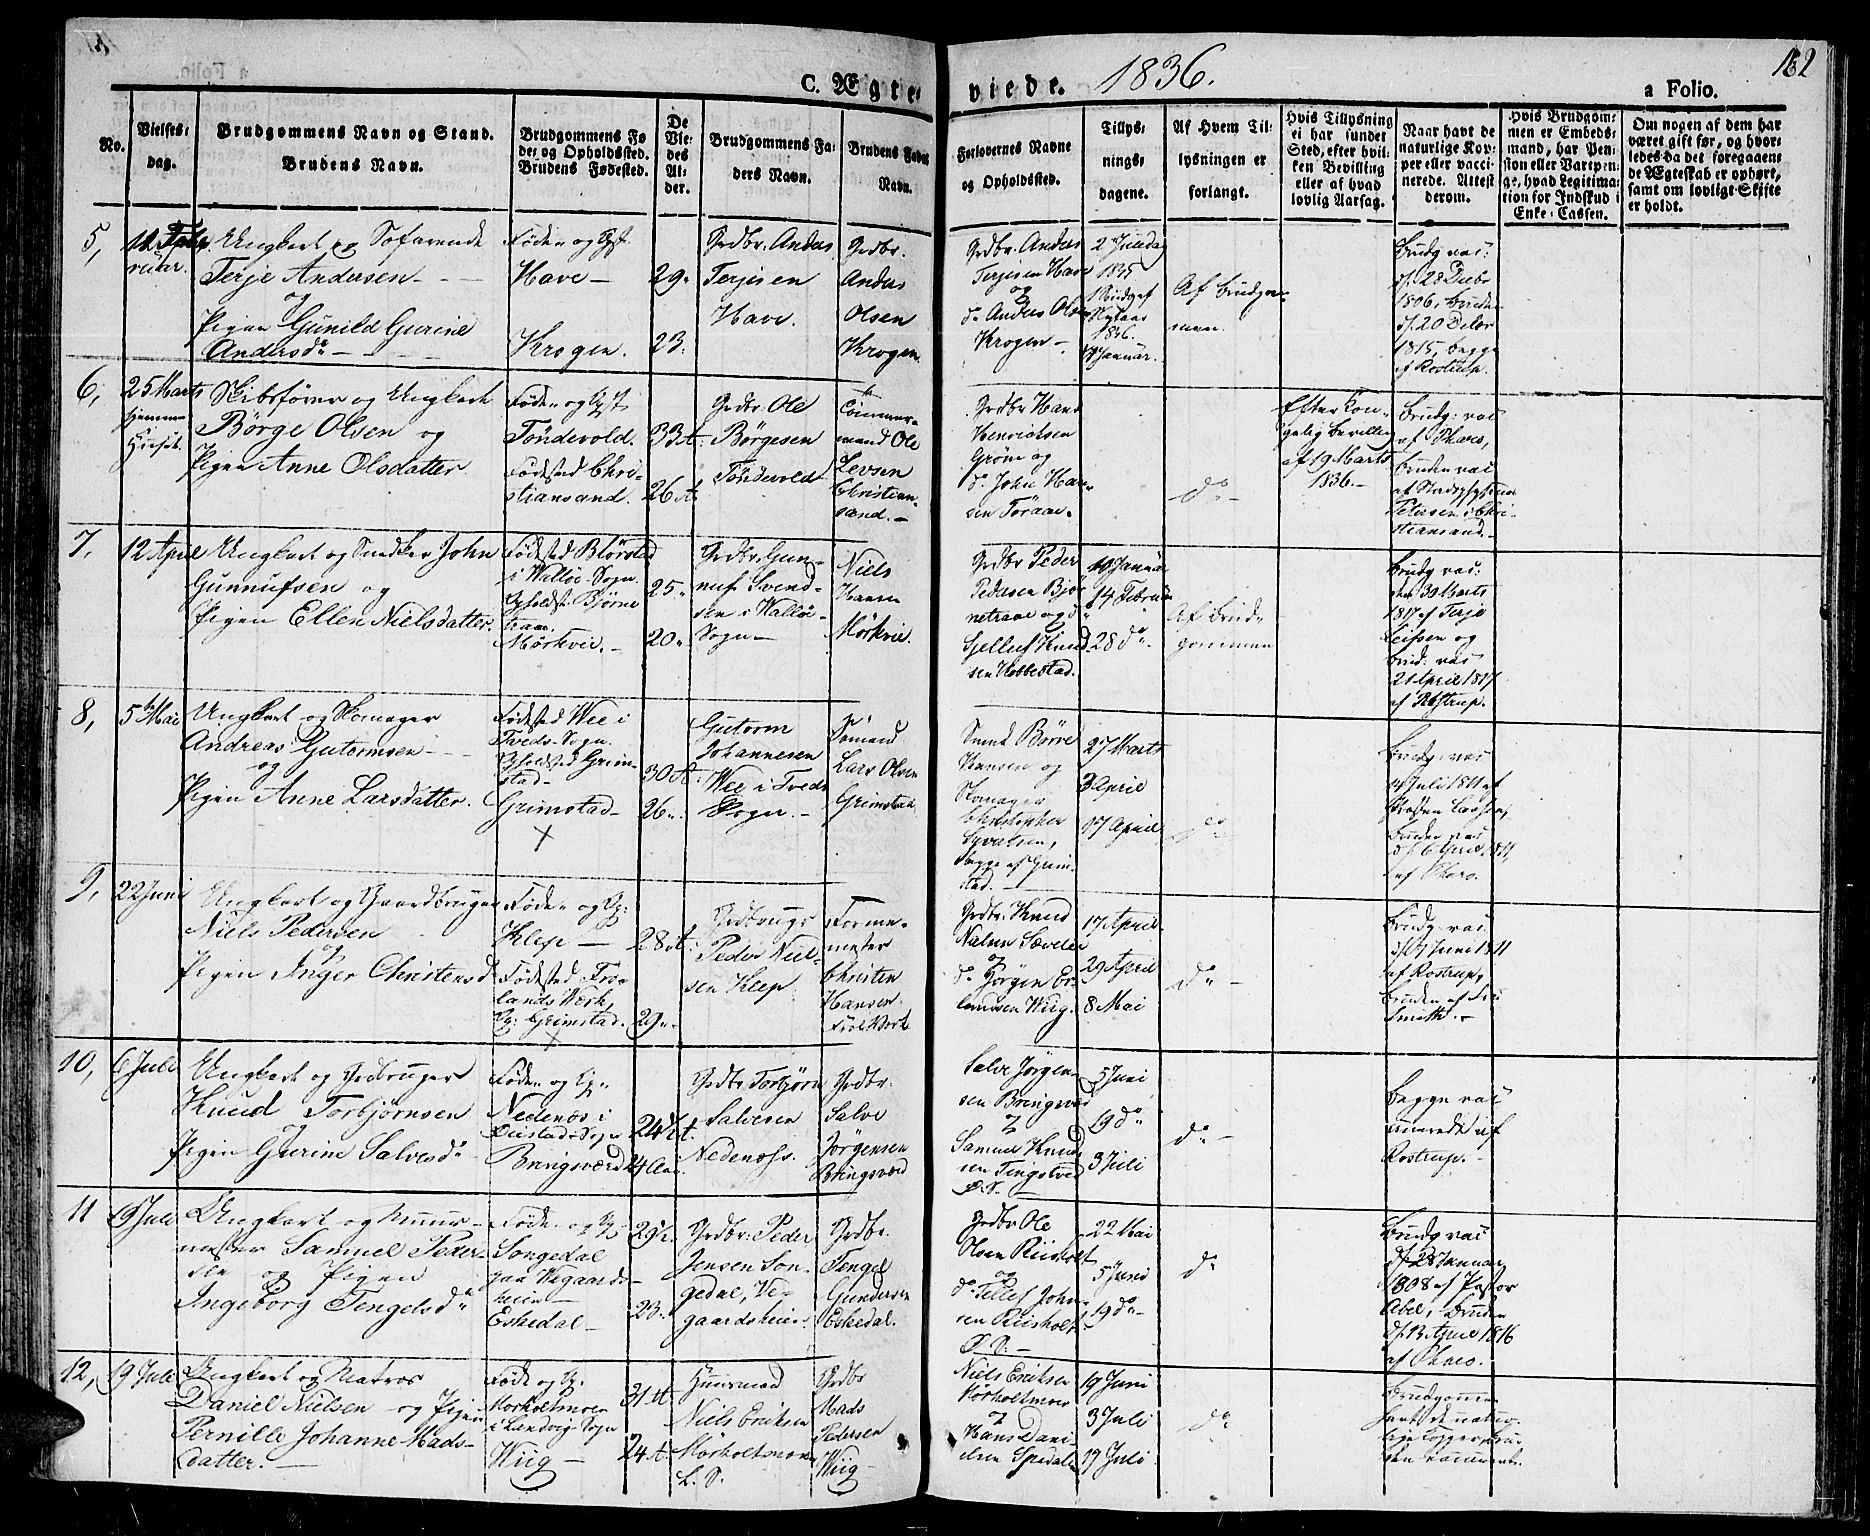 162
C. Ægte viede. 1836. a Folio.
No.
Vielses-
dag.
Brudgommens Navn og Stand.
Brudens Navn.
Brudgommens Fø-
de- og Opholdssted.
Brudens Fødested.
De
Vie-
des
Al-
der.
Brudgommens Fa-
ders Navn.
Brudens Faders
Navn.
Forlovernes Navne
og Opholdssted.
Tillys-
nings-
dagene.
Af Hvem Til-
lysningen er
forlangt.
Hvis Tillysning
ei har fundet
Sted, efter hvil-
ken Bevilling
eller af hvad
lovlig Aarsag.
Naar havt de
naturlige Kop-
per eller vacci-
nerede. Attest
derom.
Hvis Brudgom-
men er Embeds-
mand, har Pen-
sion eller Vartpen-
ge, hvad Legitima-
tion for Indskud i
Enke-Cassen.
Om nogen af dem har
været gift før, og hvor-
ledes da det foregaaen-
de Ægteskab er ophørt,
samt om lovligt Skifte
er holdt.
5,
Ungkarl og Søfarende
Terje Andersen
og
Pigen Gunild Gurine
Andersd.
Føde- og Opst.
Have
Krogen.
29
23.
Grdbr. Anders
Terjesen
Have.
Grdbr.
Anders
Olsen
Krogen
Grdbr. Anders
Terjesen Have
og
do Anders Olsen
Krogen
1835
Nytaar
1836.
Januar.
Af Brudgom-
men.
Brudg. vac:
d. 28 Decbr
1806, Bruden
d. 20 Decbr
1815, begge
af Rostrup.
6,
25 Marts
hjemme
Skibsfører og Ungkarl
Börge Olsen og
Pigen Anne Olsdatter
Føde- og Opst
Töndevold.
Fødested Chri-
stiansand.
33 A.
26 A.
Grdbr. Ole
Börgesen
Töndevold
Tömmer-
mand Ole
Zevsen
Christian-
sand.
Grdbr Hans
Henrichsen
Grøm og
do John Han-
sen Töraae.
do
Efter Kon-
gelig Bevilling
af 19 Marts
1836.
Brudg. vac:
af Tharo,
Bruden vac:
Petersen i Chri-
stiansand.
7,
12 April
Ungkarl og Snedker John
Gunnufsen og
Pigen Ellen Nielsdatter.
Fødested Blörstad
i Walløe Sogn
Opholdst. Björne-
traae
Mörkvei.
25
20
Grdbr. Gun-
nuf Svend-
sen i Walløe
Sogn
Niels
Hansen
Mörkvei.
Grdbr Peder
Pedersen Björ-
netraae og do
Gjellef Knud
sen Robbestad.
10 Januar
14 Februar
28 do
Af Brud-
gommen
Brudg vac:
den 30 Marts
1817 af Terje
Leifsen og
Brud: vac
21 April 1817
af Rostrup.
8,
5te Mai
Ungkarl og Skomager
Andreas Gutormsen
og
Pigen Anne Larsdatter.
Fødested Wee i
Tveds Sogn.
Opholdsted Grim-
stad
Grimstad
30 A
26
Gutorm
Johannesen
Wee i Tveds
Sogn.
Sömand
Lars Olsen
Grimstad
Smed Börre
Hansen og
Skomager
Christopher
Syvertsen,
begge af Grim-
stad.
27 Marts
3 April
17 April
do
Brudg: vac:
Juli 1811 af
Larsen,
Bruden vac
d. 6 April 1811
af Tharo.
9,
22 Juni
Ungkarl og Gaardbruger
Niels Pedersen
og
Pigen Inger Christensd
Føde- og Op:
Klep
Fødested Fro-
lands Værk,
Op: Grimstad.
28 A
29
Grdbrugr
Peder Niel-
sen Klep
Forme-
mester
Christen
Hansen
Frol Værk
Grdbr. Knud
Nielsen Sævelie
og
do Jörgen Er-
lansen Wiig.
17 April
29 April
8 Mai
do
Brudg. vac:
Juni 1811
af Rostrup,
Bruden af
Smith.
10,
6 Juli
Ungkarl og Grdbruger
Knud Torbjörnsen
og
Pigen Gurine Salvesd
Føde- og Op
Nedenæs i
Öiestad Sogn
Bringsværd
24½ A.
24
Grdbr Torbjörn
Salvesen
Nedenæss.
Grdbr.
Salve
Jörgensen
Bringsværd
Salve Jörgen-
sen Bringsværd
og
Samuel Knud
sen Tingstved
Ø. S.
5 Juni
19 do
3 Juli
do
Begge vac
cinerede af
Rostrup.
11
19 Juli
Ungkarl og Muur-
mester Samuel Peder-
sen og Pigen
Ingeborg Tengelsd
Føde- og Op
Songedal
paa Wegaards-
heien
Eskedal
29½
23
Grdbr. Peder
Jensen Son-
gedal, Ve-
gaardsheien.
Grdbr.
Tengel
Gundersen
Eskedal.
Grdbr Ole
Olsen Riisholt
og
do Tellef John-
sen Riisholt
Ø. S.
22 Mai
5 Juni
19 do
do
Brudg vac
d. 28 Januar
1808 af Pastor
Abel, Bruden
d. 13 April 1816
af Tharo.
12,
19 Juli
Ungkarl og Matros
Daniel Nielsen og Pigen
Pernille Johanne Mads-
datter.
Føde og Op.
Morholtmoen
i Landvig Sogn
Wiig
31 A
24 A.
Huusmand
Niels Eriksen
Mörholtsmoen
L. S.
Grdbr
Mads
Pedersen
Wiig
Niels Eriksen
Morholtmoen
og
Hans Dani-
elsen Spedalen
19 Juni
3 Juli
17 Juli
do
Brudgommen
havt de natur-
lige Kopper, Bru-
den vaccineret.